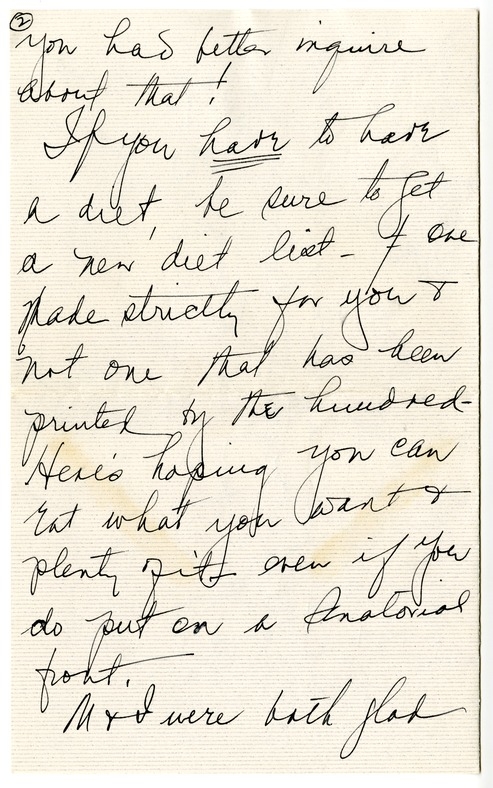 ②
you had better inquire
about that!
If you have to have
a diet, be sure to get
a new diet list - & one
made strictly for you &
not one that has been
printed by the hundred-
Here's hoping you can
Eat what you want &
plenty of it even if you
do put on a Senatorial
front.
M & I were both glad